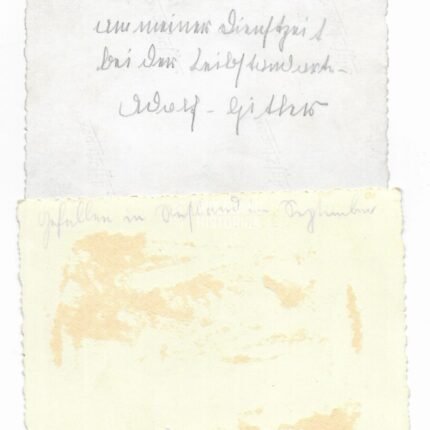 aus meiner Dienstzeit
bei der Leibstandarte-
Adolf-Hitler
Gefallen in Rußland im September